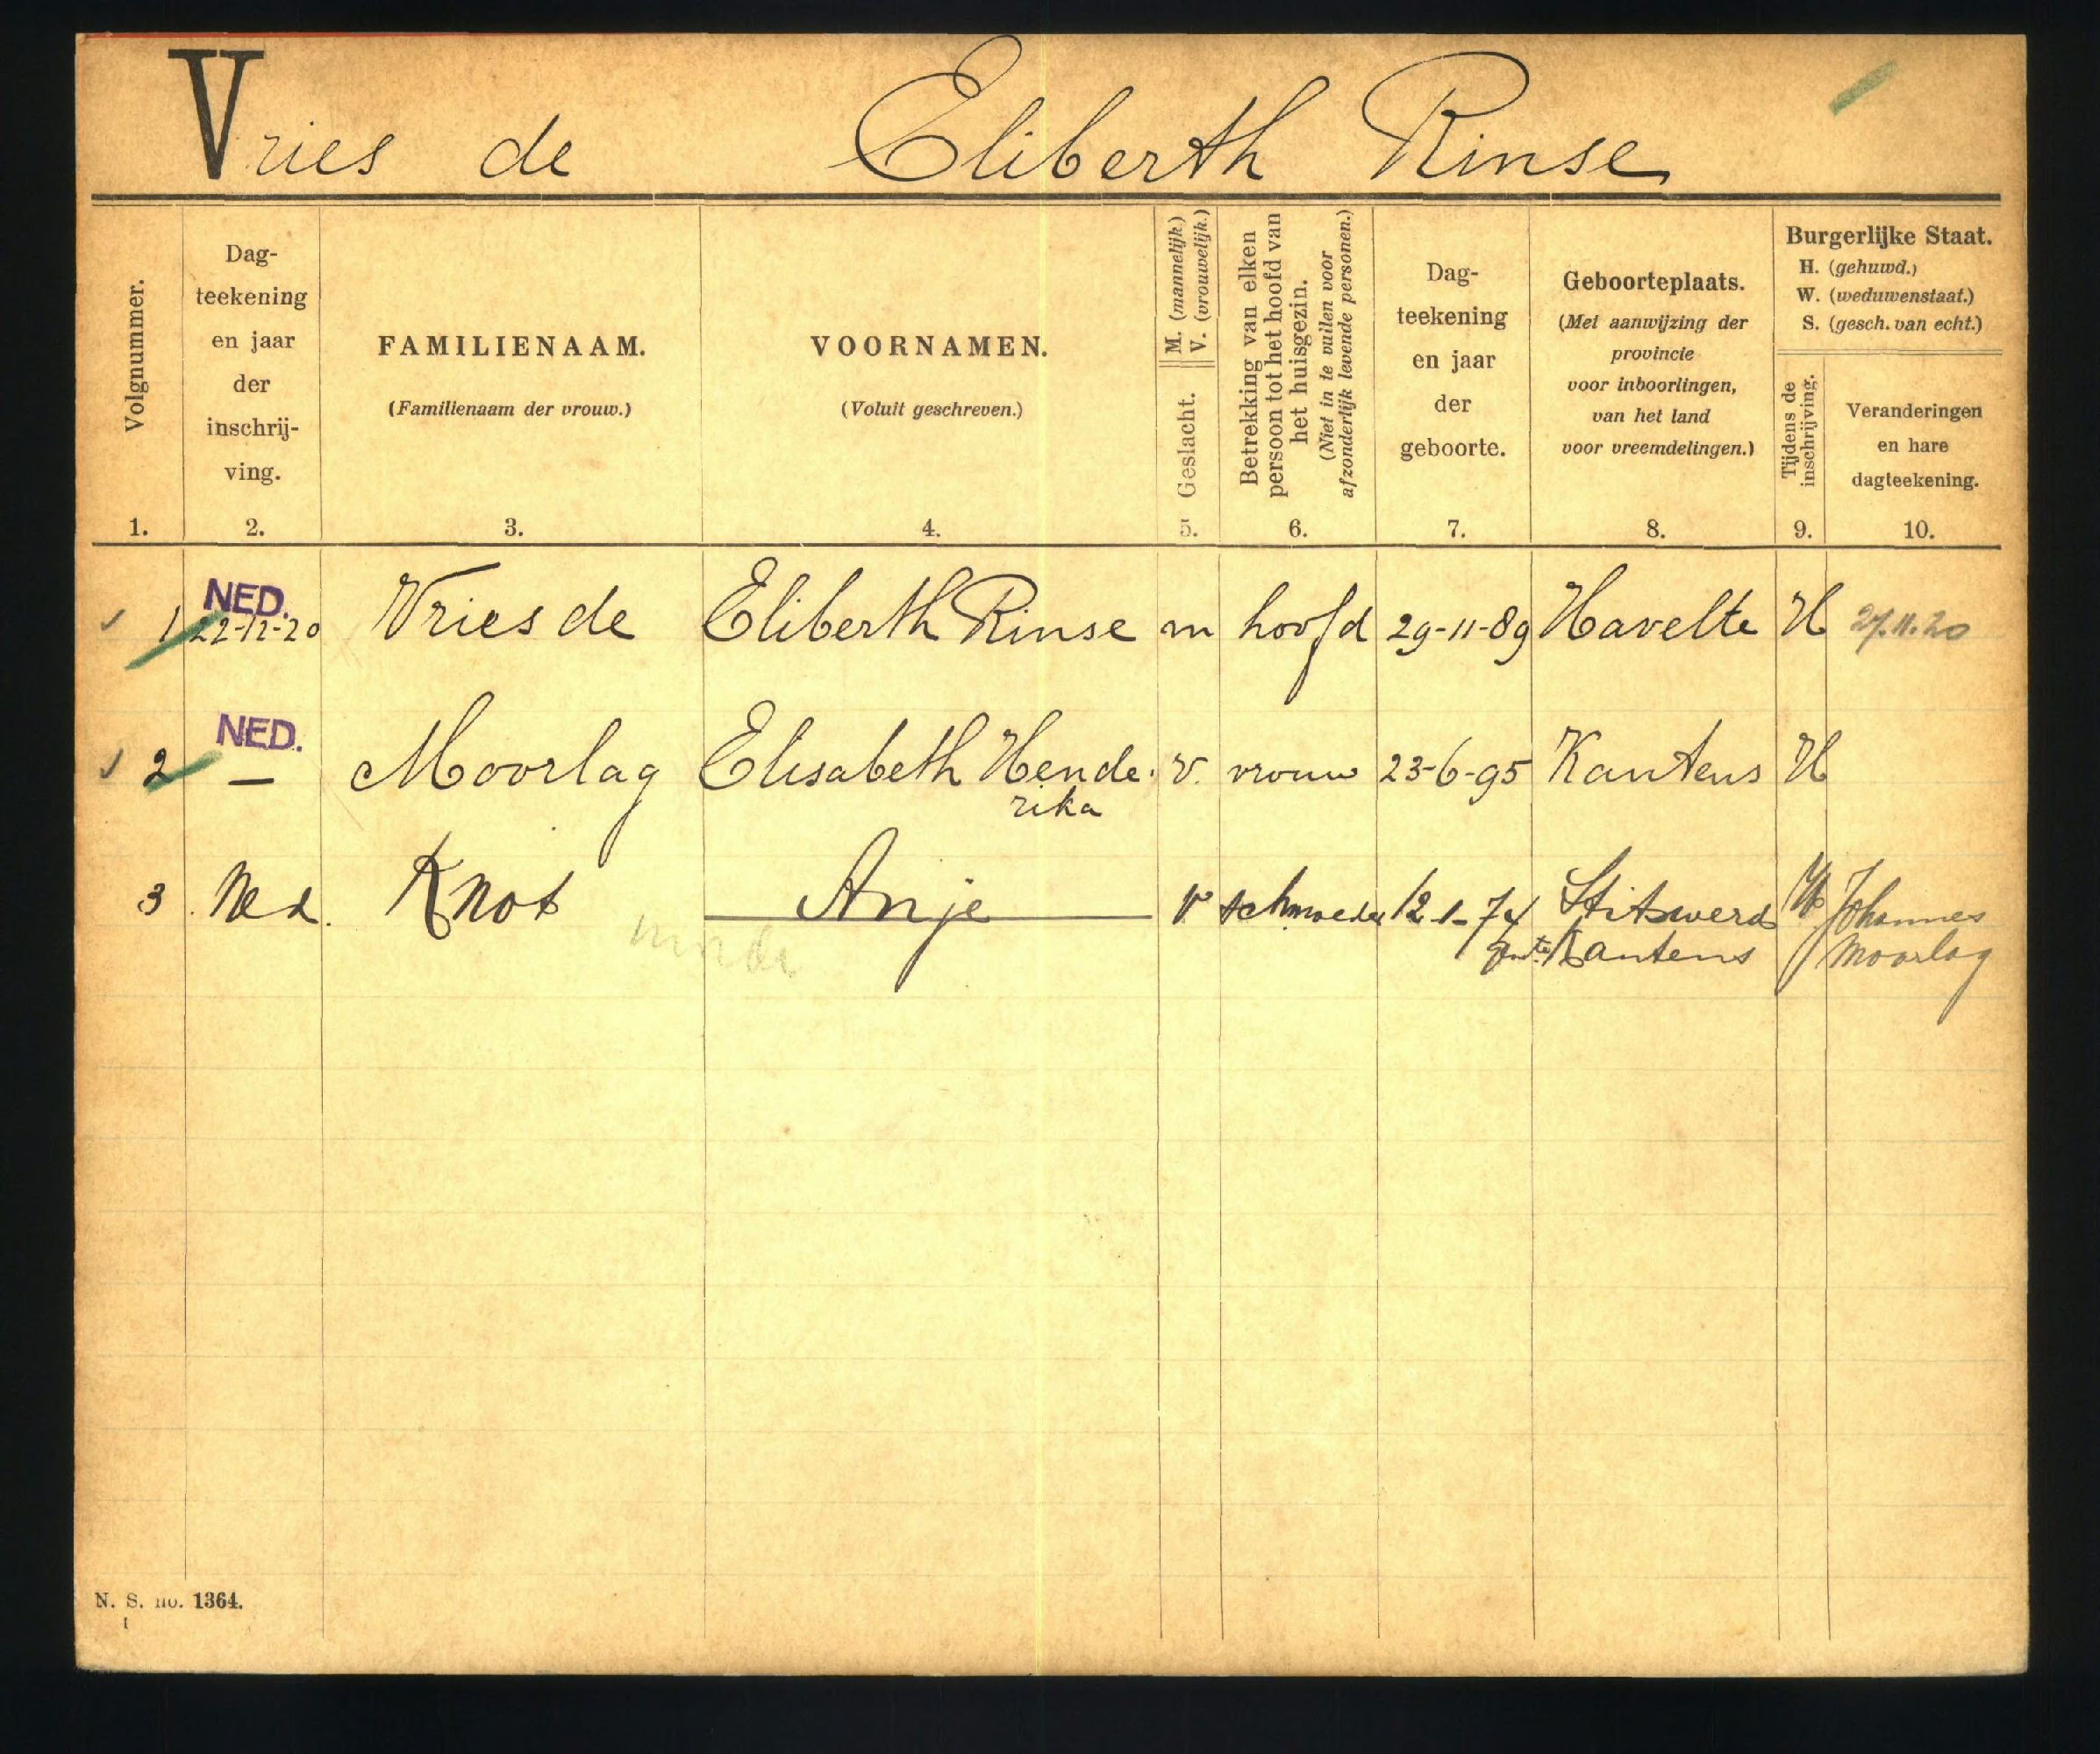 Vries de Eliberth Rinse
Volgnummer.
Dag-
teekening
en jaar
der
inschrij-
ving.
FAMILIENAAM.
(Familienaam der vrouw.)
VOORNAMEN.
(Voluit geschreven.)
M. (mannelijk.)
V. (vrouwelijk.)
Geslacht.
Betrekking van elken
persoon tot het hoofd van
het huisgezin.
(Niet in te vullen voor
afzonderlijk levende personen.)
Dag-
teekening
en jaar
der
geboorte.
Geboorteplaats.
(Met aanwijzing der
provincie
voor inboorlingen,
van het land
voor vreemdelingen.)
Burgerlijke Staat.
H. (gehuwd.)
W. (weduwenstaat.)
S. (gesch. van echt.)
Tijdens de
inschrijving.
Veranderingen
en hare
dagteekening.
1. 2. 3. 4. 5. 6. 7. 8. 9. 10.
NED.
1 22-12-20 Vries de Eliberth Rinse m hoofd 29-11-89 Havelte H 27.11.20
NED.
2 — Moorlag Elisabeth Hende- v. vrouw 23-6-95 Kantens H
rika
3 Ned. Knot Anje v schmoeder 12-1-74 Stitswerd W Johannes
Kantens Moorlag
N. S. no. 1364.